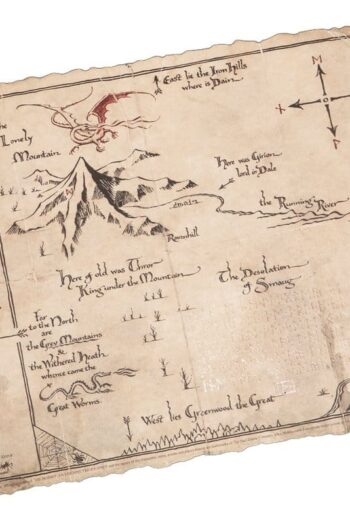 East lie the Iron Hills
where is Dain.
the
Lonely
Mountain
M
Here was Girion
lord in Dale
the Running River
Ravenhill
Here of old was Thror
King under the Mountain
The Desolation
of Smaug
Far
to the North
are
the Grey Mountains
&
the Withered Heath
whence came the
Great Worms.
West lies Greenwood the Great